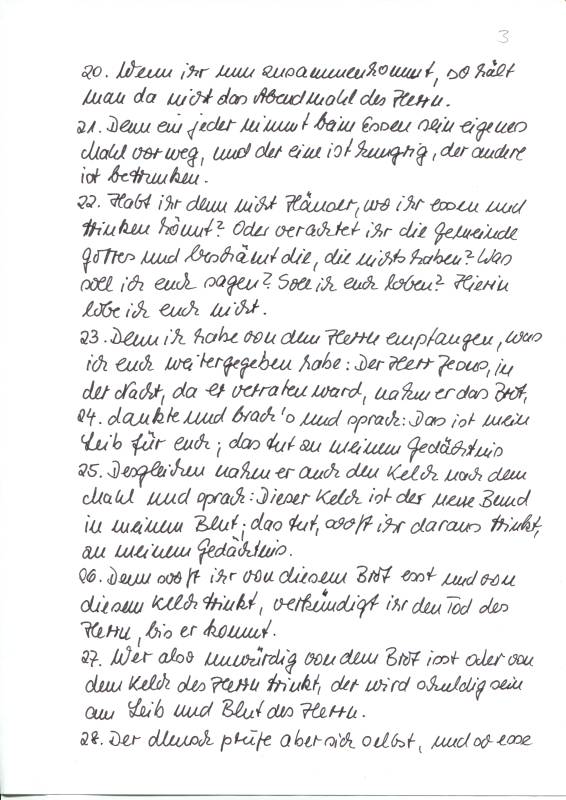 3
20. Wenn ihr nun zusammenkommt, so hält
man da nicht das Abendmahl des Herrn.
21. Denn ein jeder nimmt beim Essen sein eigenes
Mahl vorweg, und der eine ist hungrig, der andere
ist betrunken.
22. Habt ihr denn nicht Häuser, wo ihr essen und
trinken könnt? Oder verachtet ihr die Gemeinde
Gottes und beschämt die, die nichts haben? Was
soll ich euch sagen? Soll ich euch loben? Hierin
lobe ich euch nicht.
23. Denn ich habe von dem Herrn empfangen, was
ich euch weitergegeben habe: Der Herr Jesus, in
der Nacht, da er verraten ward, nahm er das Brot,
24. dankte und brach's und sprach: Das ist mein
Leib für euch; das tut zu meinem Gedächtnis
25. Desgleichen nahm er auch den Kelch nach dem
Mahl und sprach: Dieser Kelch ist der neue Bund
in meinem Blut; das tut, sooft ihr daraus trinkt,
zu meinem Gedächtnis.
26. Denn sooft ihr von diesem Brot esst und von
diesem Kelch trinkt, verkündigt ihr den Tod des
Herrn, bis er kommt.
27. Wer also unwürdig von dem Brot isst oder von
dem Kelch des Herrn trinkt, der wird schuldig sein
am Leib und Blut des Herrn.
28. Der Mensch prüfe aber sich selbst, und so esse